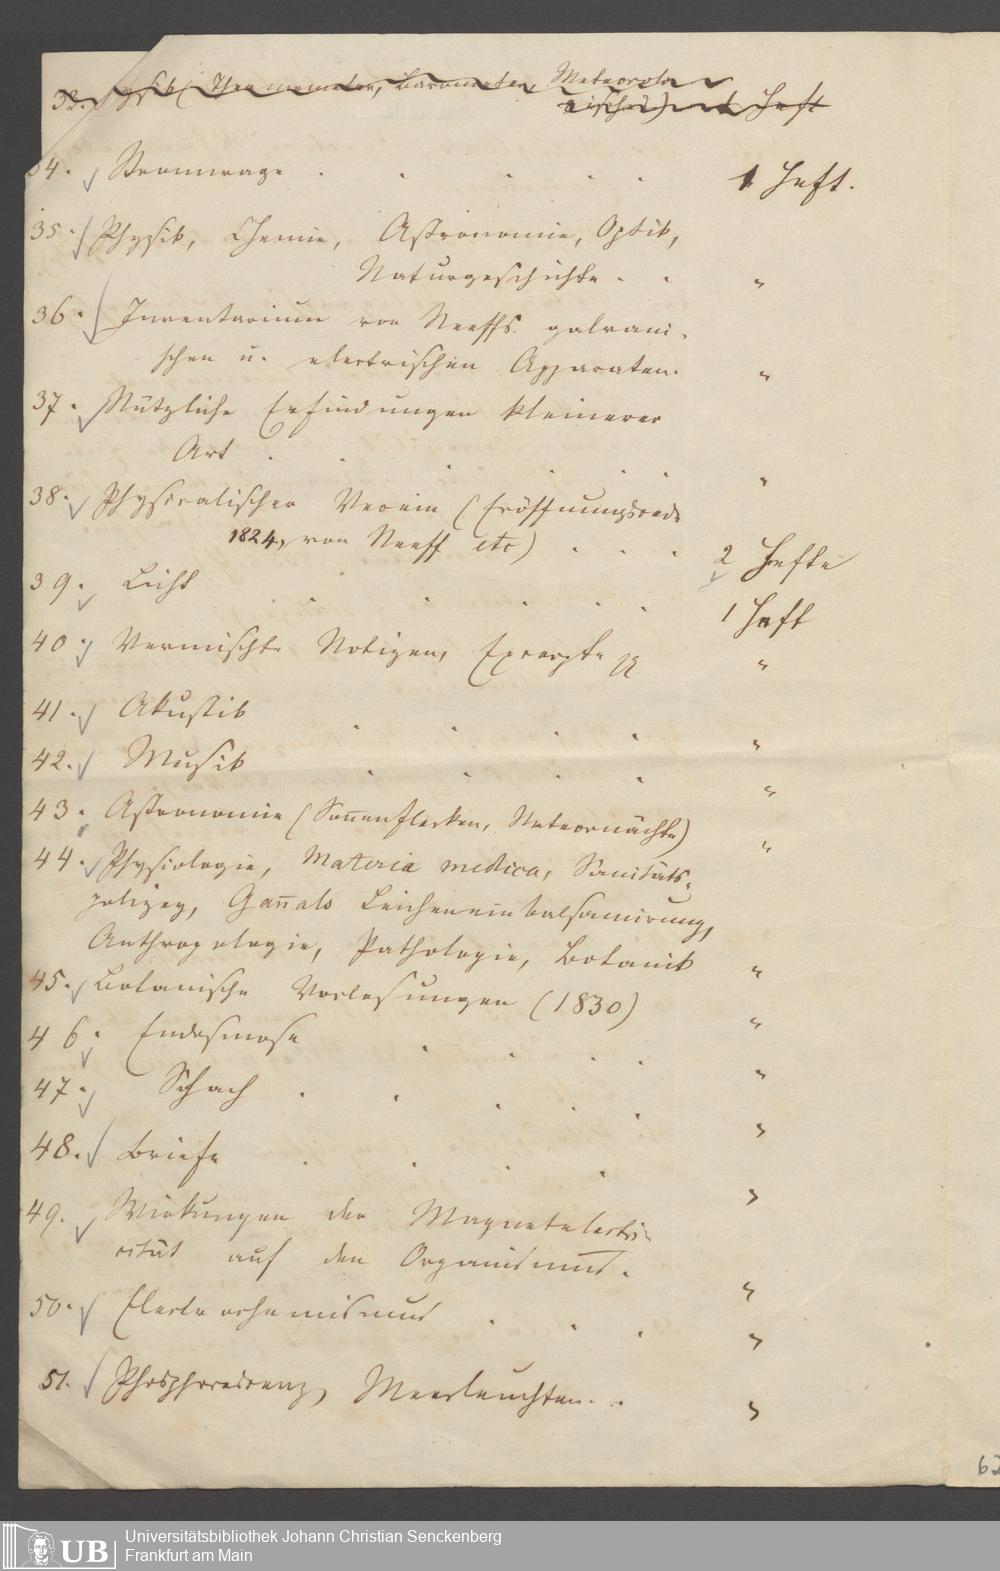 33. Physik (Thermometer, Barometer, Meteorolo
gisches) 1 Heft
34. Stromwage . . . . . 1 Heft.
35. Physik, Chemie, Astronomie, Optik,
Naturgeschichte . . "
36. Inventarium von Neeffs. galvani-
schen u. electrischen Apparaten. "
37. Nützliche Erfindungen kleinerer
Art . . . . . . "
38. Physicalischer Verein (Eröffnungsrede
1824, von Neeff etc) . . . 2 Hefte
39. Licht . . . . . . 1 Heft
40. Vermischte Notizen, Excerpte "
41. Akustik . . . . "
42. Musik . . . . "
43. Astronomie (Soñenflecken, Meteornächte) "
44. Physiologie, Materia medica, Sanitäts-
polizey, Gañals Leicheneinbalsamirung,
Anthropologie, Pathologie, Botanik "
45. Botanische Vorlesungen (1830) "
46. Endosmose . . . . "
47. Schach . . . . . "
48. Briefe . . . . "
49. Wirkungen der Magnetelectri-
cität auf den Organismus. "
50. Electrochemismus . . . "
51. Phosphorescenz, Meerleuchten. . "
62
UB Universitätsbibliothek Johann Christian Senckenberg
Frankfurt am Main